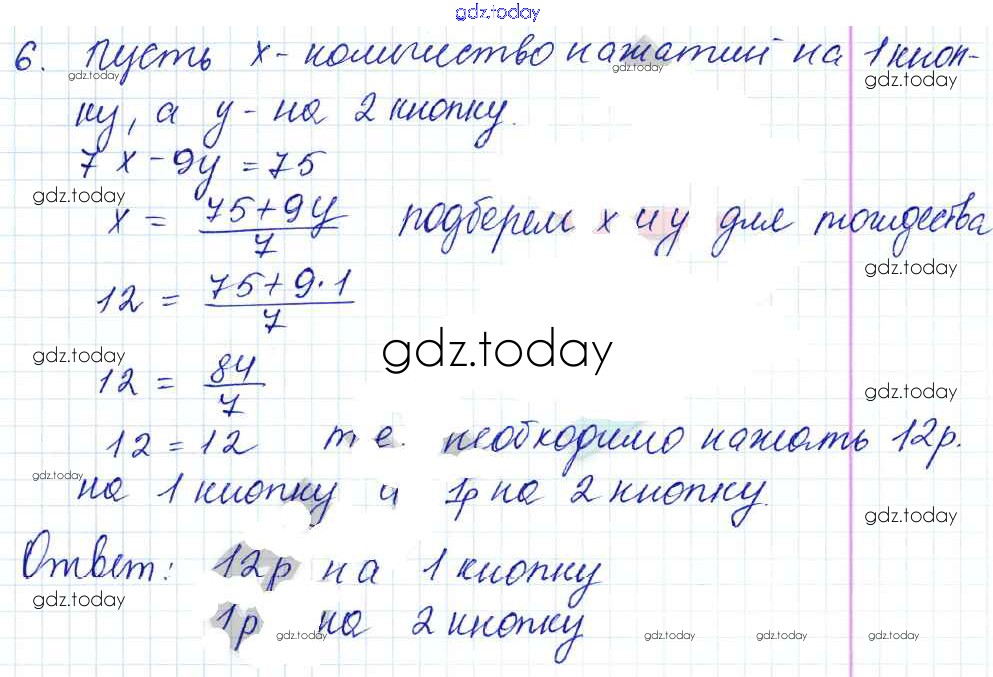 gdz.today
6. Пусть x - количество нажатий на 1 кноп-
gdz.today gdz.today
ку, а y - на 2 кнопку.
7x - 9y = 75
gdz.today
x = (75+9y)/7 подберем x и y для тождества
gdz.today
12 = (75+9·1)/7
gdz.today gdz.today
12 = 84/7
gdz.today
12 = 12 т.е. необходимо нажать 12р.
gdz.today
на 1 кнопку и 1р на 2 кнопку.
gdz.today
Ответ: 12р на 1 кнопку
gdz.today
1р на 2 кнопку
gdz.today gdz.today gdz.today gdz.today